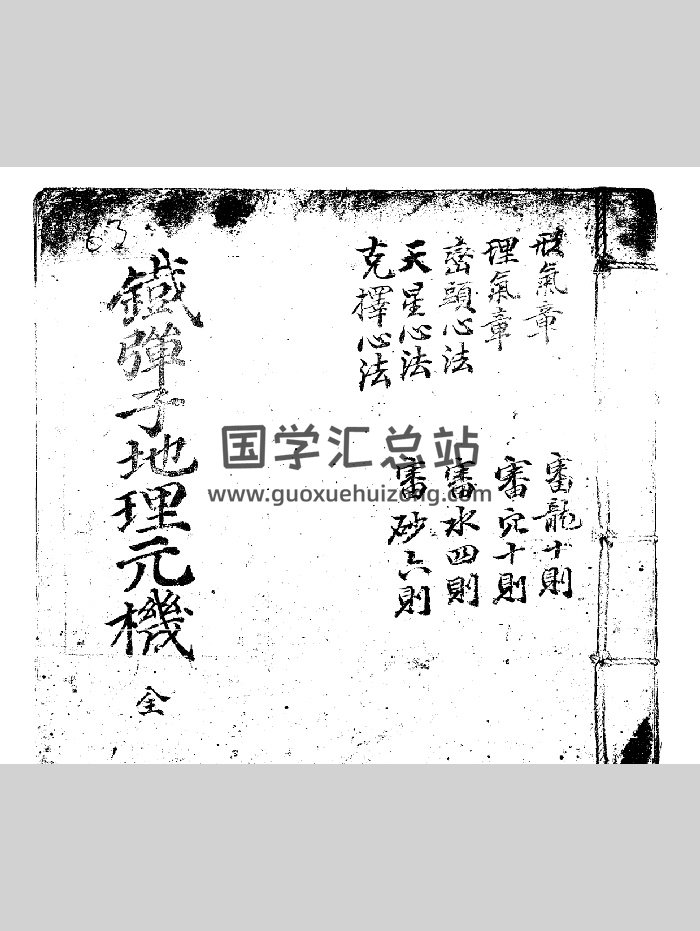 形氣章
理氣章
巒頭心法
天星心法
克擇心法
審龍十則
審穴十則
審水四則
審砂六則
鐵彈子地理元機
全
63
国学汇总站
www.guoxuehuizong.com